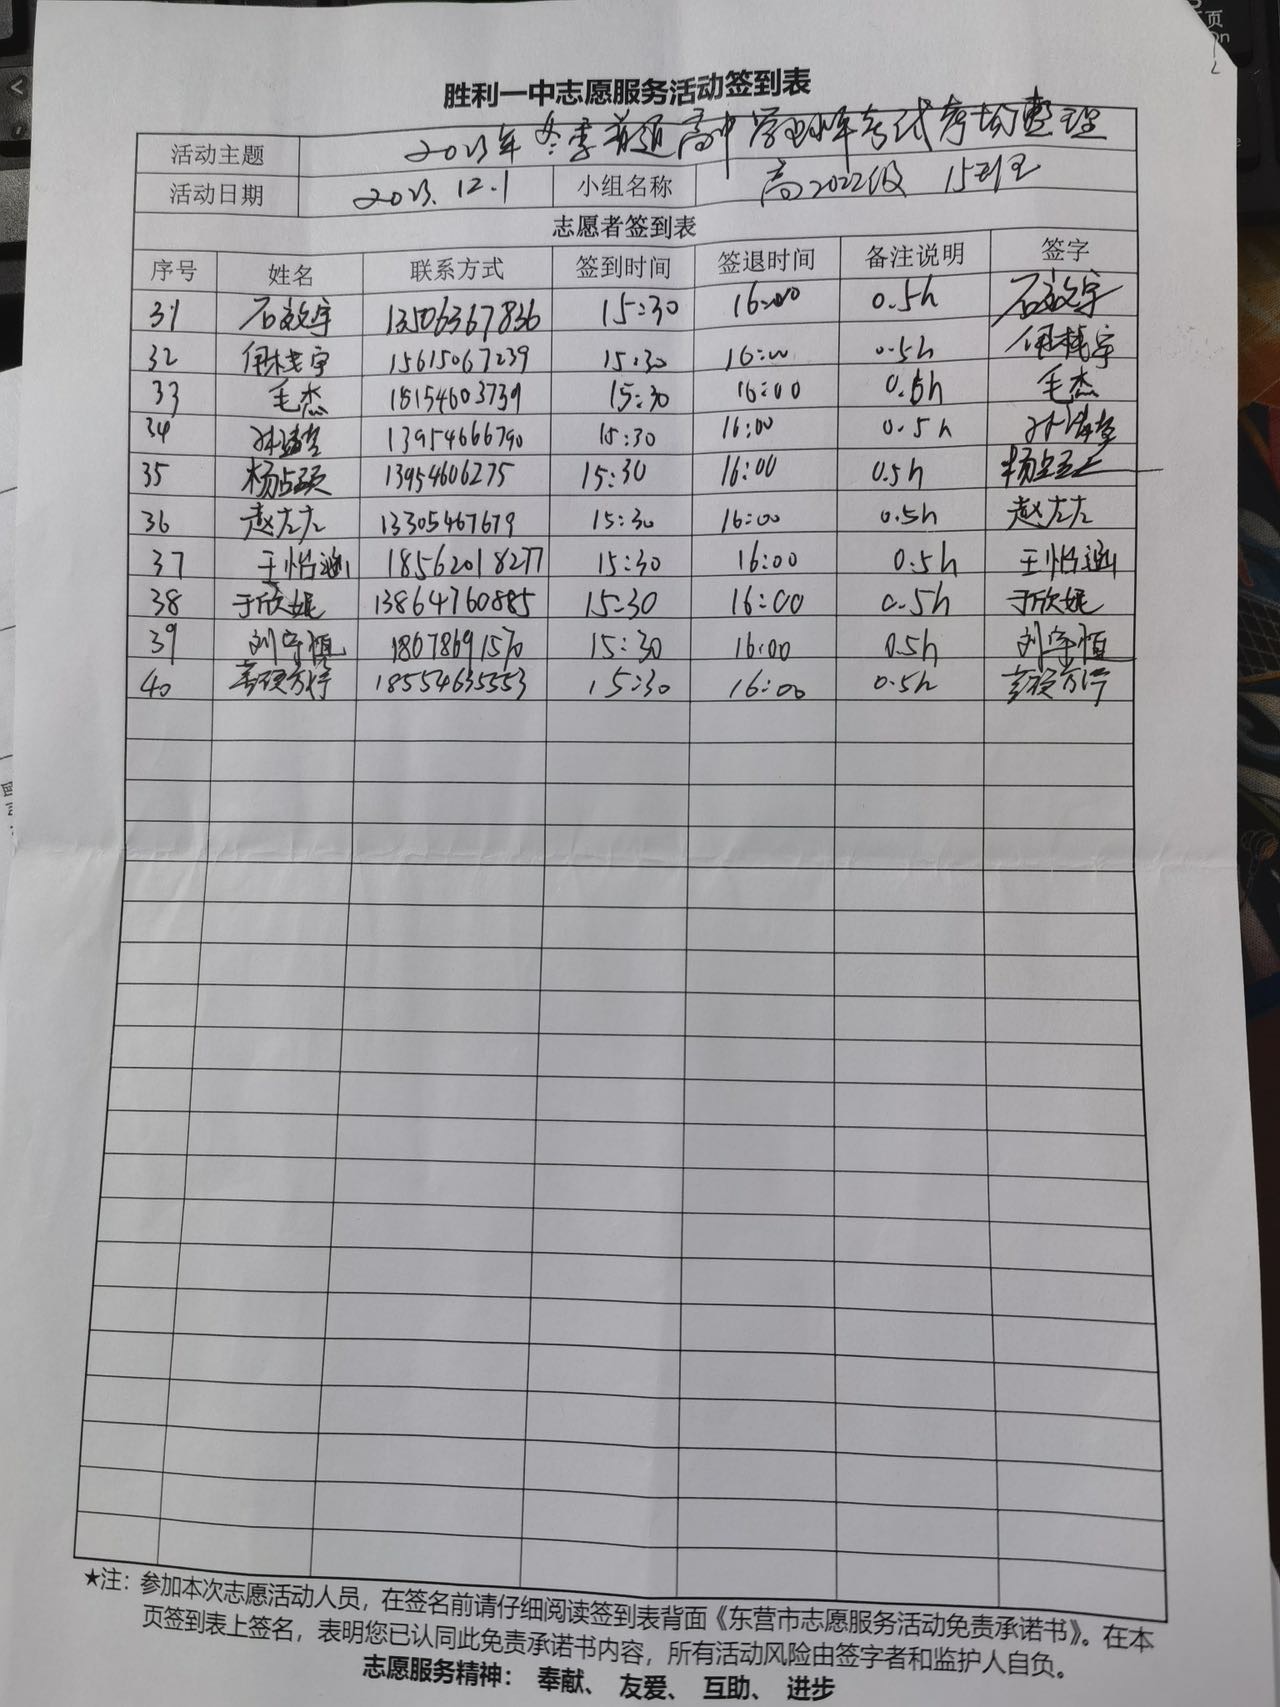 胜利一中志愿服务活动签到表
活动主题 2023年冬季普通高中学业水平考试考场整理
活动日期 2023.12.1 小组名称 高2022级 15班
志愿者签到表
序号 姓名 联系方式 签到时间 签退时间 备注说明 签字
31 石文宇 13506367836 15:30 16:00 0.5h 石文宇
32 15615067239 15:30 16:00 0.5h
33 毛杰 18154603739 15:30 16:00 0.5h 毛杰
34 13954666790 15:30 16:00 0.5h
35 13954606275 15:30 16:00 0.5h
36 赵左左 13305467679 15:30 16:00 0.5h 赵左左
37 王怡涵 18562018277 15:30 16:00 0.5h 王怡涵
38 于欣妮 13864760885 15:30 16:00 0.5h 于欣妮
39 刘宇恒 18678691570 15:30 16:00 0.5h 刘宇恒
40 18554635553 15:30 16:00 0.5h
★注：参加本次志愿活动人员，在签名前请仔细阅读签到表背面《东营市志愿服务活动免责承诺书》。在本
页签到表上签名，表明您已认同此免责承诺书内容，所有活动风险由签字者和监护人自负。
志愿服务精神： 奉献、 友爱、 互助、 进步